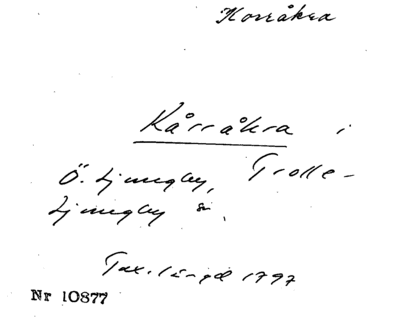 Korråkra
Kårråkra i
Ö. Ljungby, Trolle-
Ljungby sn.
Tax.längd 1797
Nr 10877